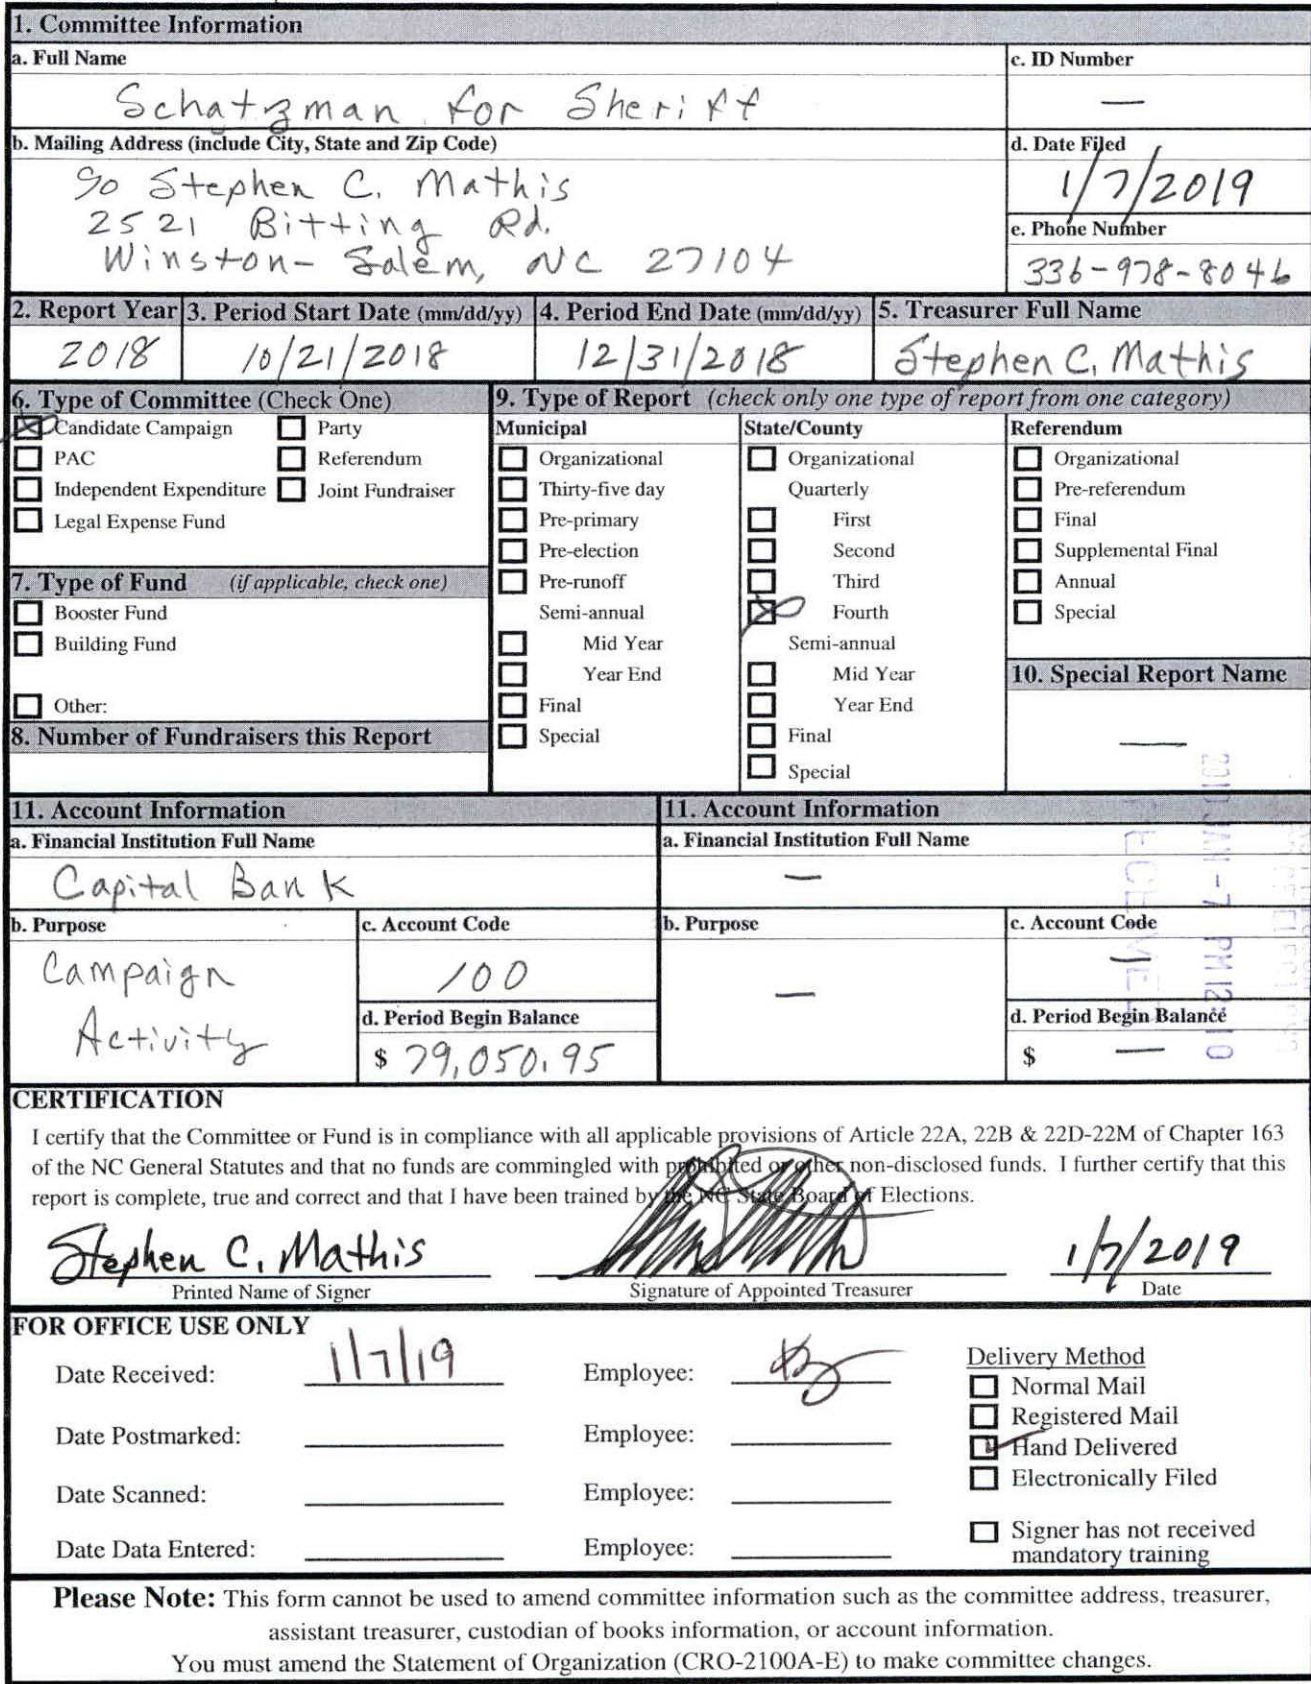 1. Committee Information
a. Full Name
Schatzman for Sheriff
c. ID Number
—
b. Mailing Address (include City, State and Zip Code)
c/o Stephen C. Mathis
2521 Bitting Rd.
Winston-Salem, NC 27104
d. Date Filed
1/7/2019
e. Phone Number
336-978-8046
2. Report Year
2018
3. Period Start Date (mm/dd/yy)
10/21/2018
4. Period End Date (mm/dd/yy)
12/31/2018
5. Treasurer Full Name
Stephen C. Mathis
6. Type of Committee (Check One)
Candidate Campaign
Party
PAC
Referendum
Independent Expenditure
Joint Fundraiser
Legal Expense Fund
7. Type of Fund (if applicable, check one)
Booster Fund
Building Fund
Other:
8. Number of Fundraisers this Report
9. Type of Report (check only one type of report from one category)
Municipal
Organizational
Thirty-five day
Pre-primary
Pre-election
Pre-runoff
Semi-annual
Mid Year
Year End
Final
Special
State/County
Organizational
Quarterly
First
Second
Third
Fourth
Semi-annual
Mid Year
Year End
Final
Special
Referendum
Organizational
Pre-referendum
Final
Supplemental Final
Annual
Special
10. Special Report Name
—
11. Account Information
a. Financial Institution Full Name
Capital Bank
b. Purpose
Campaign
Activity
c. Account Code
100
d. Period Begin Balance
$ 79,050.95
11. Account Information
a. Financial Institution Full Name
—
b. Purpose
—
c. Account Code
—
d. Period Begin Balance
$ —
JAN -7 PM 12:10
CERTIFICATION
I certify that the Committee or Fund is in compliance with all applicable provisions of Article 22A, 22B & 22D-22M of Chapter 163
of the NC General Statutes and that no funds are commingled with prohibited or other non-disclosed funds. I further certify that this
report is complete, true and correct and that I have been trained by the NC State Board of Elections.
Stephen C. Mathis
1/7/2019
Printed Name of Signer
Signature of Appointed Treasurer
Date
FOR OFFICE USE ONLY
Date Received: 1/7/19
Employee:
Date Postmarked:
Employee:
Date Scanned:
Employee:
Date Data Entered:
Employee:
Delivery Method
Normal Mail
Registered Mail
Hand Delivered
Electronically Filed
Signer has not received
mandatory training
Please Note: This form cannot be used to amend committee information such as the committee address, treasurer,
assistant treasurer, custodian of books information, or account information.
You must amend the Statement of Organization (CRO-2100A-E) to make committee changes.